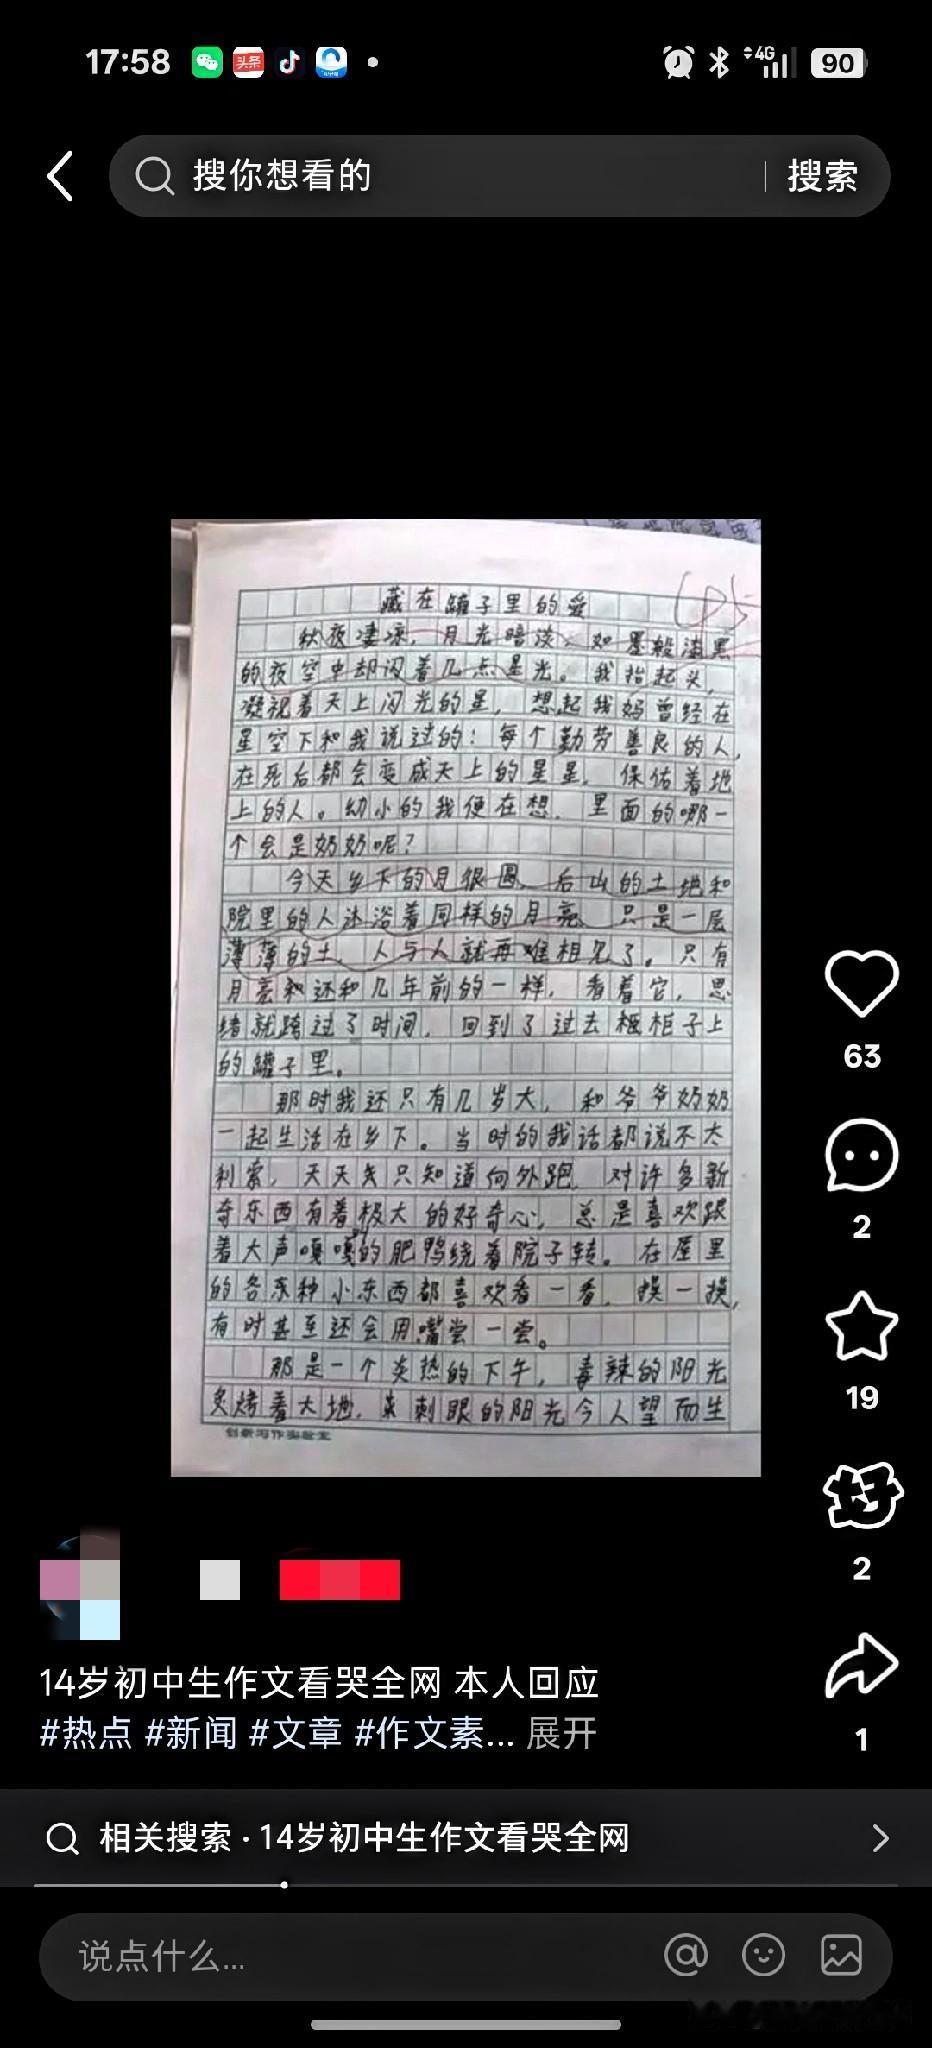 17:58
头条
4G
90
搜你想看的
搜索
藏在罐子里的爱
秋夜凄凉，月光暗淡，如墨般漆黑
的夜空中却闪着几点星光。我抬起头，
凝视着天上闪光的星，想起我妈曾经在
星空下和我说过的：每个勤劳善良的人，
在死后都会变成天上的星星，保佑着地
上的人。幼小的我便在想，里面的哪一
个会是奶奶呢？
今天乡下的月很圆，后山的土地和
院里的人沐浴着同样的月亮，只是一层
薄薄的土，人与人就再难相见了。只有
月亮和还和几年前的一样，看着它，思
绪就跨过了时间，回到了过去柜子上
的罐子里。
那时我还只有几岁大，和爷爷奶奶
一起生活在乡下。当时的我话都说不太
利索，天天只知道向外跑，对许多新
奇东西有着极大的好奇心，总是喜欢跟
着大声嘎嘎的肥鸭绕着院子转。在屋里
的各种小东西都喜欢看一看，摸一摸，
有时甚至还会用嘴尝一尝。
那是一个炎热的下午，毒辣的阳光
炙烤着大地，刺眼的阳光令人望而生
创新写作实验室
63
2
19
2
1
14岁初中生作文看哭全网 本人回应
#热点 #新闻 #文章 #作文素... 展开
相关搜索 · 14岁初中生作文看哭全网
说点什么...